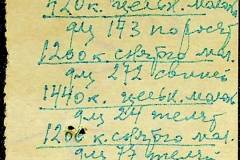 420 к. цельн. молока
для 173 поросят
1200 к. снятого мол.
для 272 свиней
1440 к. цельн. молок.
для 24 телят
1200 к. снятого мол.
для 77 телят